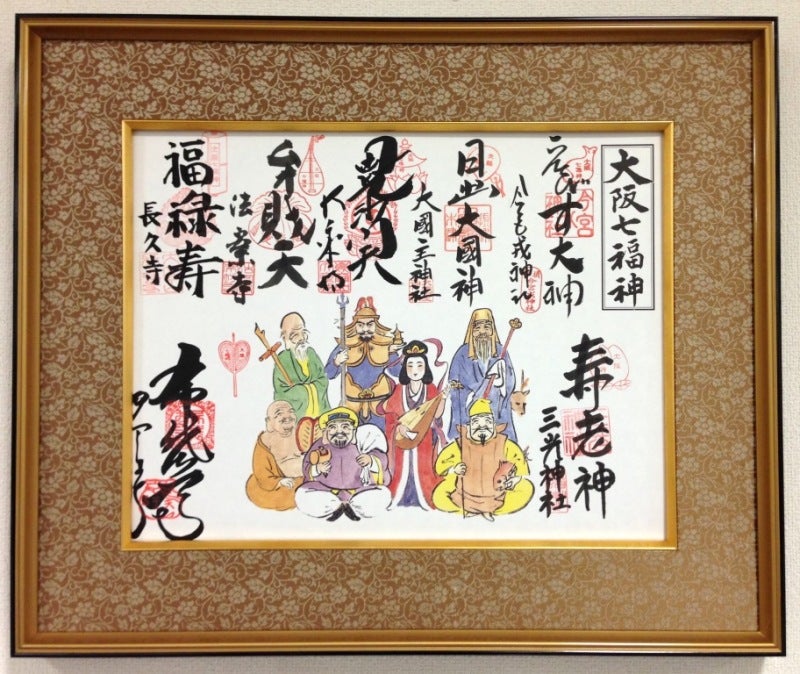 大阪七福神
ゑびす大神
今宮戎神社
日出大國神
大國主神社
毘沙門天
大乗坊
弁財天
法案寺
福禄寿
長久寺
寿老神
三光神社
布袋尊
四天王寺